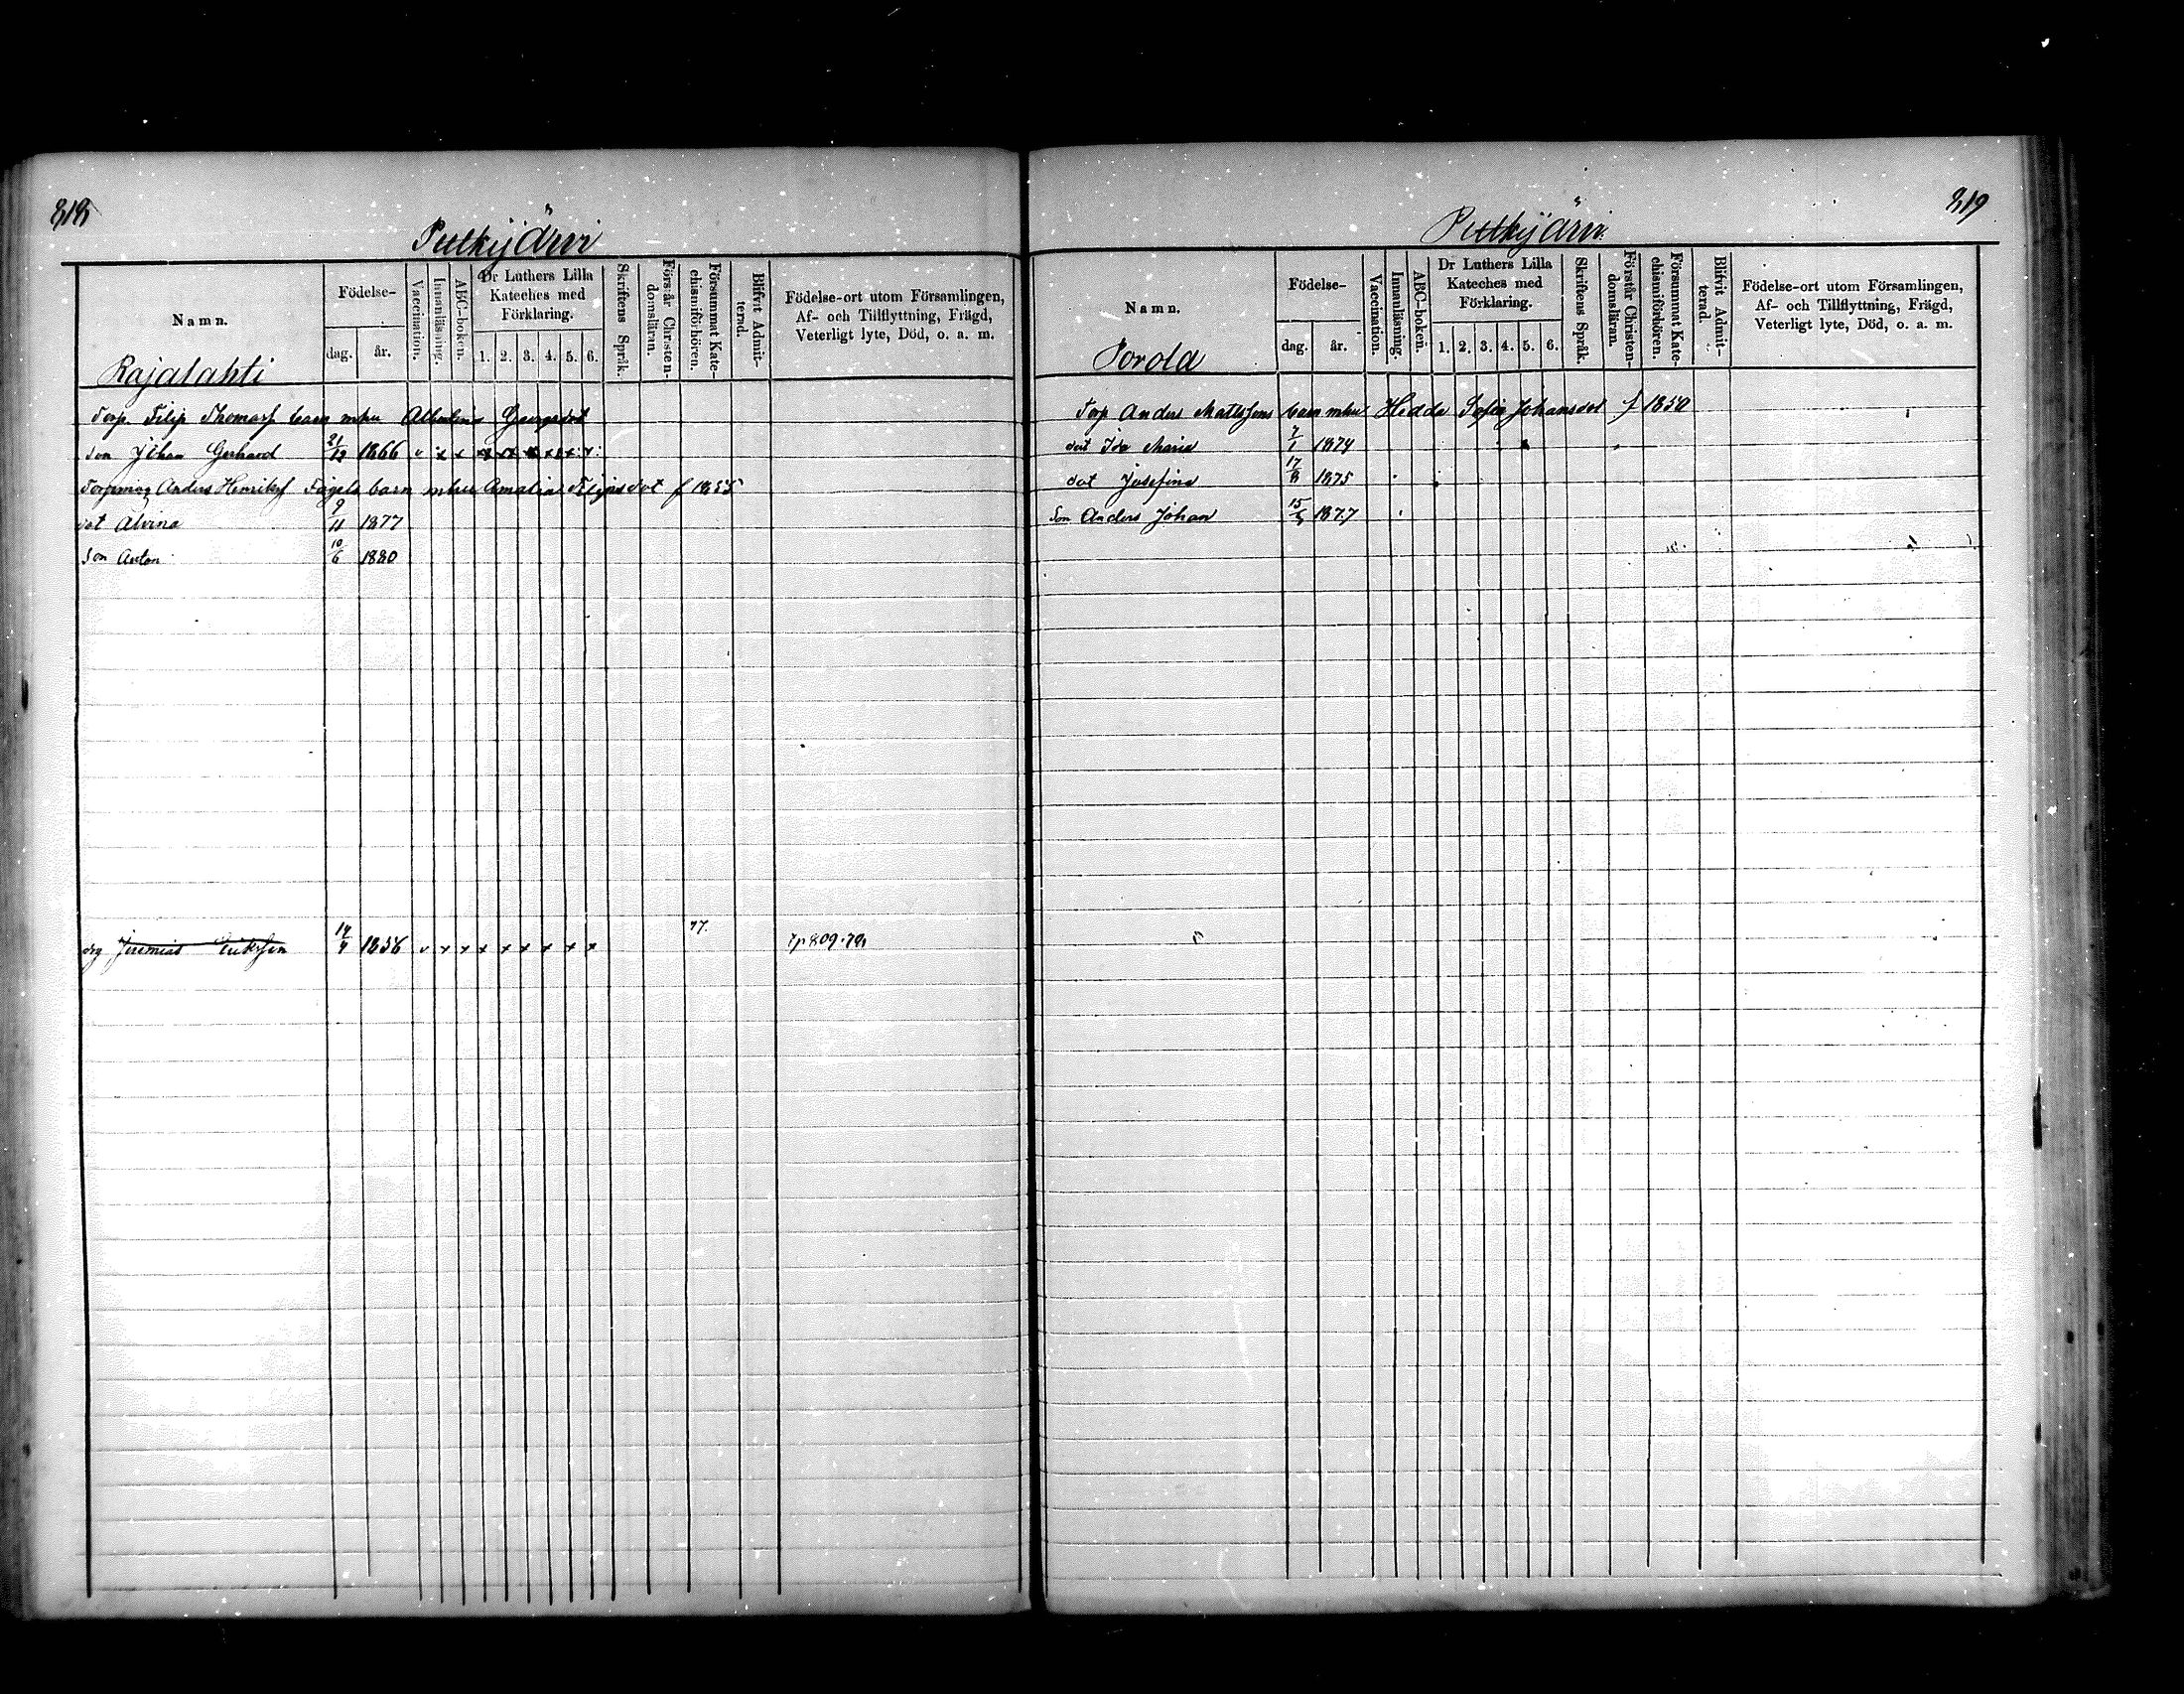 818
Putkijärvi
Namn.
Födelse-
dag.
år.
Vaccination.
Innanläsning.
ABC-boken.
Dr Luthers Lilla
Kateches med
Förklaring.
1. 2. 3. 4. 5. 6.
Skriftens Språk.
Förstår Christen-
domsläran.
Försummat Kate-
chismiförhören.
Blifvit Admit-
terad.
Födelse-ort utom Församlingen,
Af- och Tillflyttning, Frägd,
Veterligt lyte, Död, o. a. m.
Rajalahti
Torp. Filip Thomass barn mhu Albertina Georgsdot
Son Johan Gerhard 21/12 1866 v x x x x x x x x
Anders Henrikss Fågels barn mhu Amalia Filipsdot f 1855
dot Alvina 9/11 1877
Son Anton 10/6 1880
drg Jeremias Eriksson 14/9 1856 v x x x x x x x x 77. 7p 809.78
819
Putkijärvi
Namn.
Födelse-
dag.
år.
Vaccination.
Innanläsning.
ABC-boken.
Dr Luthers Lilla
Kateches med
Förklaring.
1. 2. 3. 4. 5. 6.
Skriftens Språk.
Förstår Christen-
domsläran.
Försummat Kate-
chismiförhören.
Blifvit Admit-
terad.
Födelse-ort utom Församlingen,
Af- och Tillflyttning, Frägd,
Veterligt lyte, Död, o. a. m.
Porola
Torp Anders Mattssons barn mhu Hedda Sofia Johansdot f 1850
dot Ida Maria 7/1 1874
dot Josefina 17/8 1875
Son Anders Johan 15/5 1877